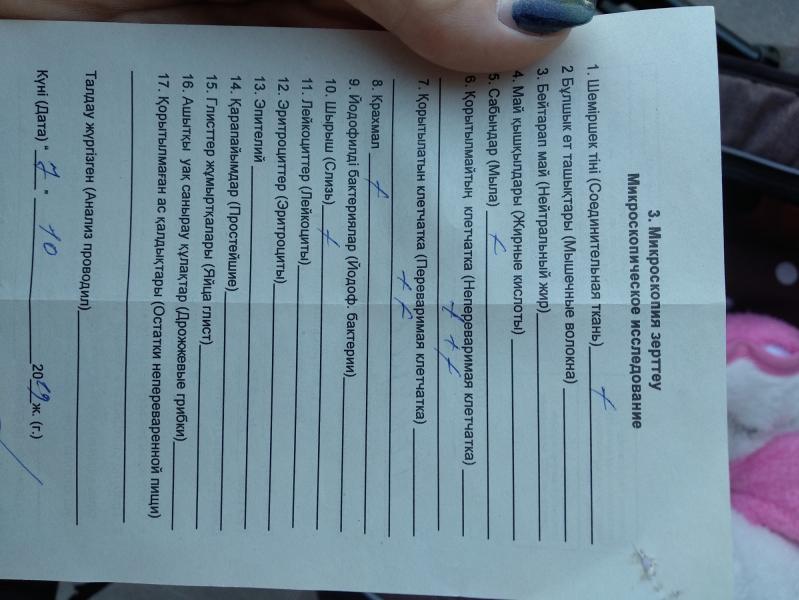 3. Микроскопия зерттеу
Микроскопическое исследование
1. Шеміршек тіні (Соединительная ткань) +
2 Бұлшық ет ташықтары (Мышечные волокна)
3. Бейтарап май (Нейтральный жир)
4. Май қышқылдары (Жирные кислоты)
5. Сабындар (Мыла) +
6. Қорытылмайтын клетчатка (Непереваримая клетчатка)
+ + +
7. Қорытылатын клетчатка (Переваримая клетчатка)
+ +
8. Крахмал +
9. Йодофилді бактериялар (Йодоф. бактерии)
10. Шырыш (Слизь) +
11. Лейкоциттер (Лейкоциты)
12. Эритроциттер (Эритроциты)
13. Эпителий
14. Қарапайымдар (Простейшие)
15. Глисттер жұмыртқалары (Яйца глист)
16. Ашытқы уақ санырау құлақтар (Дрожжевые грибки)
17. Қорытылмаған ас қалдықтары (Остатки непереваренной пищи)
Талдау жүргізген (Анализ проводил)
Күні (Дата) " 7 " 10 2019 ж. (г.)